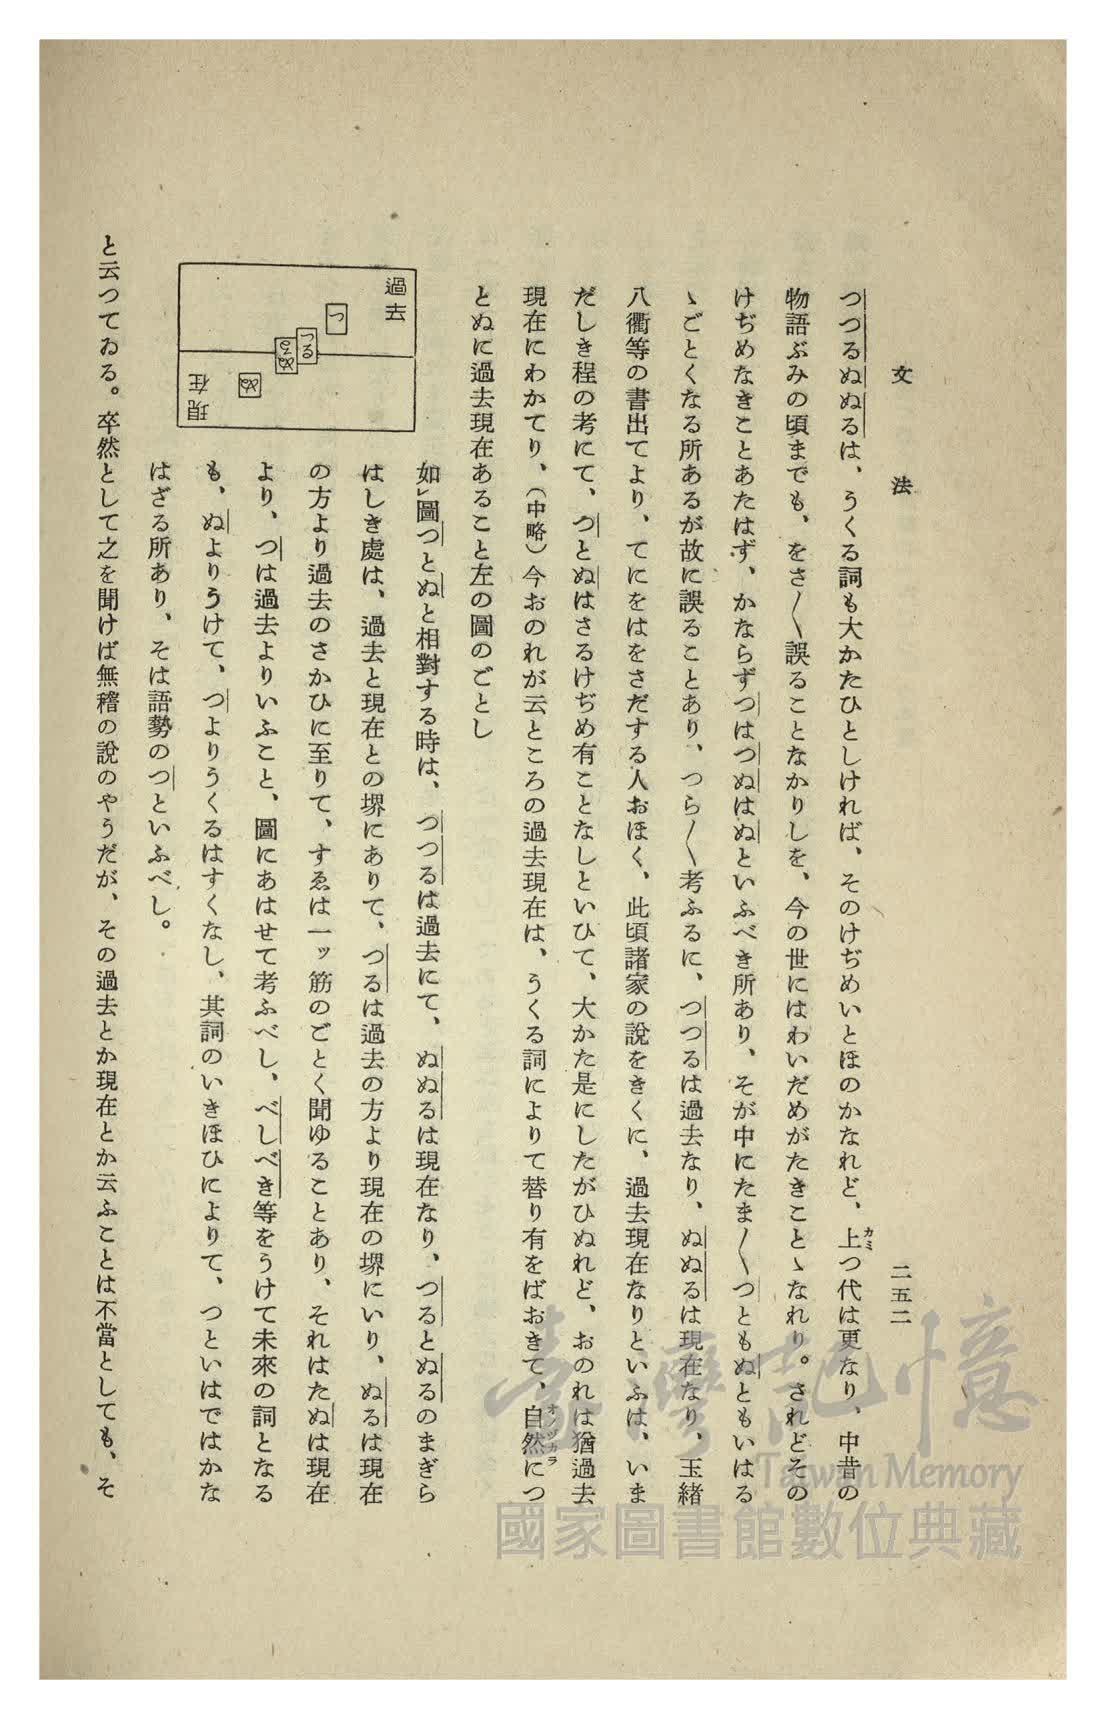 文法
二五二
つつるぬぬるは、うくる詞も大かたひとしければ、そのけぢめいとほのかなれど、上つ代は更なり、中昔の
カミ
物語ぶみの頃までも、をさ〳〵誤ることなかりしを、今の世にはわいだめがたきことゝなれり。されどその
けぢめなきことあたはず、かならずつはつぬはぬといふべき所あり、そが中にたま〳〵つともぬともいはる
ゝごとくなる所あるが故に誤ることあり、つら〳〵考ふるに、つつるは過去なり、ぬぬるは現在なり、玉緒
八衢等の書出てより、てにをはをさだする人おほく、此頃諸家の說をきくに、過去現在なりといふは、いま
だしき程の考にて、つとぬはさるけぢめ有ことなしといひて、大かた是にしたがひぬれど、おのれは猶過去
現在にわかてり、（中略）今おのれが云ところの過去現在は、うくる詞によりて替り有をばおきて、自然につ
オノヅカラ
とぬに過去現在あること左の圖のごとし
過去
つ
つる
ぬる
ぬ
現在
如㆑圖つとぬと相對する時は、つつるは過去にて、ぬぬるは現在なり、つるとぬるのまぎら
はしき處は、過去と現在との堺にありて、つるは過去の方より現在の堺にいり、ぬるは現在
の方より過去のさかひに至りて、すゑは一ッ筋のごとく聞ゆることあり、それはたぬは現在
より、つは過去よりいふこと、圖にあはせて考ふべし、べしべき等をうけて未來の詞となる
も、ぬよりうけて、つよりうくるはすくなし、其詞のいきほひによりて、つといはではかな
はざる所あり、そは語勢のつといふべし。
と云つてゐる。卒然として之を聞けば無稽の說のやうだが、その過去とか現在とか云ふことは不當としても、そ
臺灣記憶
Taiwan Memory
國家圖書館數位典藏